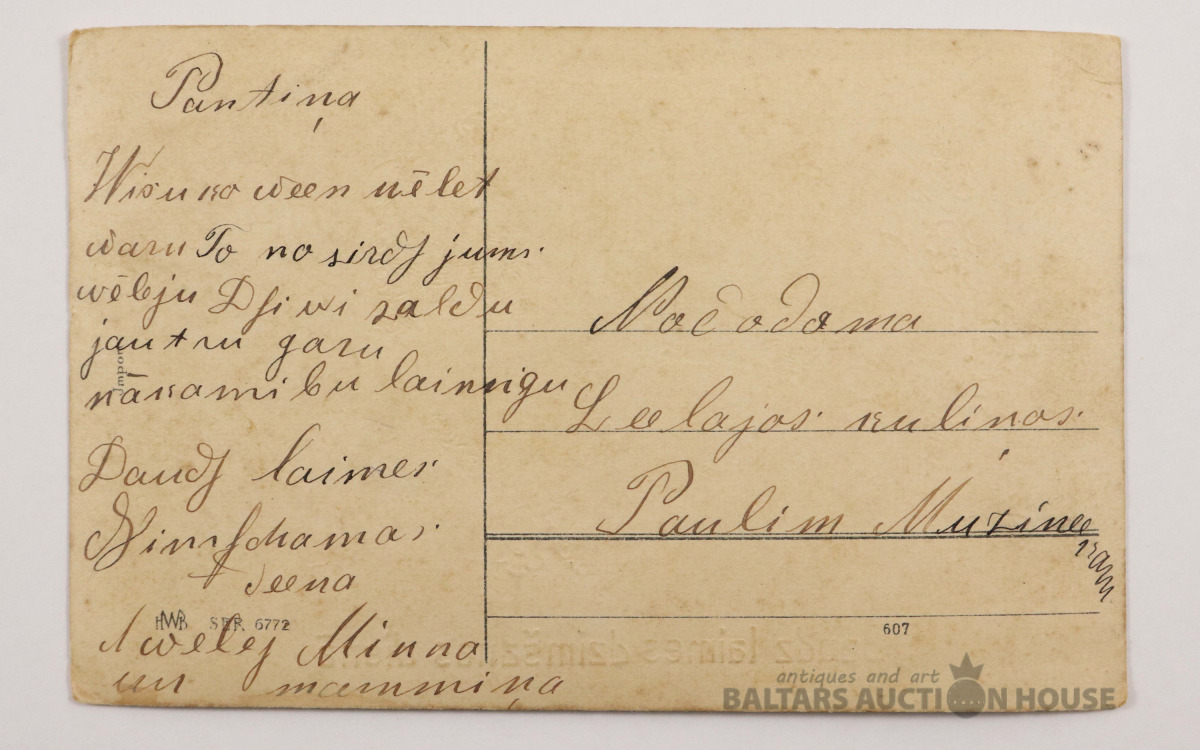 Pantiņa
Wisu ko ween wēlet
waru To no sirds jums
wēleju Dsiwi saldu
jautru garu
nākamibu laimigu
Daudz laimes
Dimschanas
deena
Nowēlej Minna
un mammiņa
HWB SER 6772
Nočodama
Leelajos kulinos
Paulim Muzinee
kam
607
antiques and art
BALTARS AUCTION HOUSE